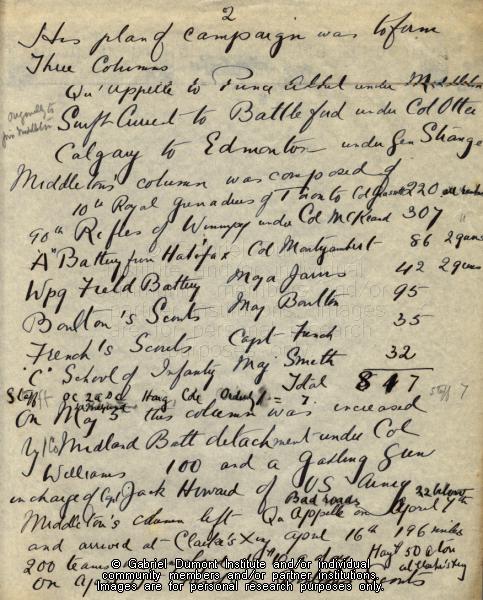 2
His plan of campaign was to form
Three Columns
Qu'Appelle to Prince Albert under Middleton
Swift Current to Battleford under Col Otter
originally to join Middleton
Calgary to Edmonton under Gen Strange
Middleton's column was composed of
10th Royal Grenadiers of Toronto Col 220 all ranks
90th Rifles of Winnipeg under Col McKeand 307 "
"A" Battery from Halifax Col Montyambert 86 2 guns
Wpg Field Battery Major Jarvis 42 2 guns
Boulton's Scouts Maj Boulton 95
French's Scouts Capt French 35
"C" School of Infantry Maj Smith 32
Total 817
Staff = 7 Staff 7
On May 5 this column was increased
by Midland Batt detachment under Col
Williams 100 and a Gatling Gun
in charge of Capt Jack Howard of US Army
Bad roads 22 below
Middleton's column left Qu'Appelle on April 7th
and arrived at Clarke's Xing April 16th 196 miles
200 teams Hay $50 a ton
at Clarke's Xing
on
© Gabriel Dumont Institute and/or individual
community members and/or partner institutions.
Images are for personal research purposes only.